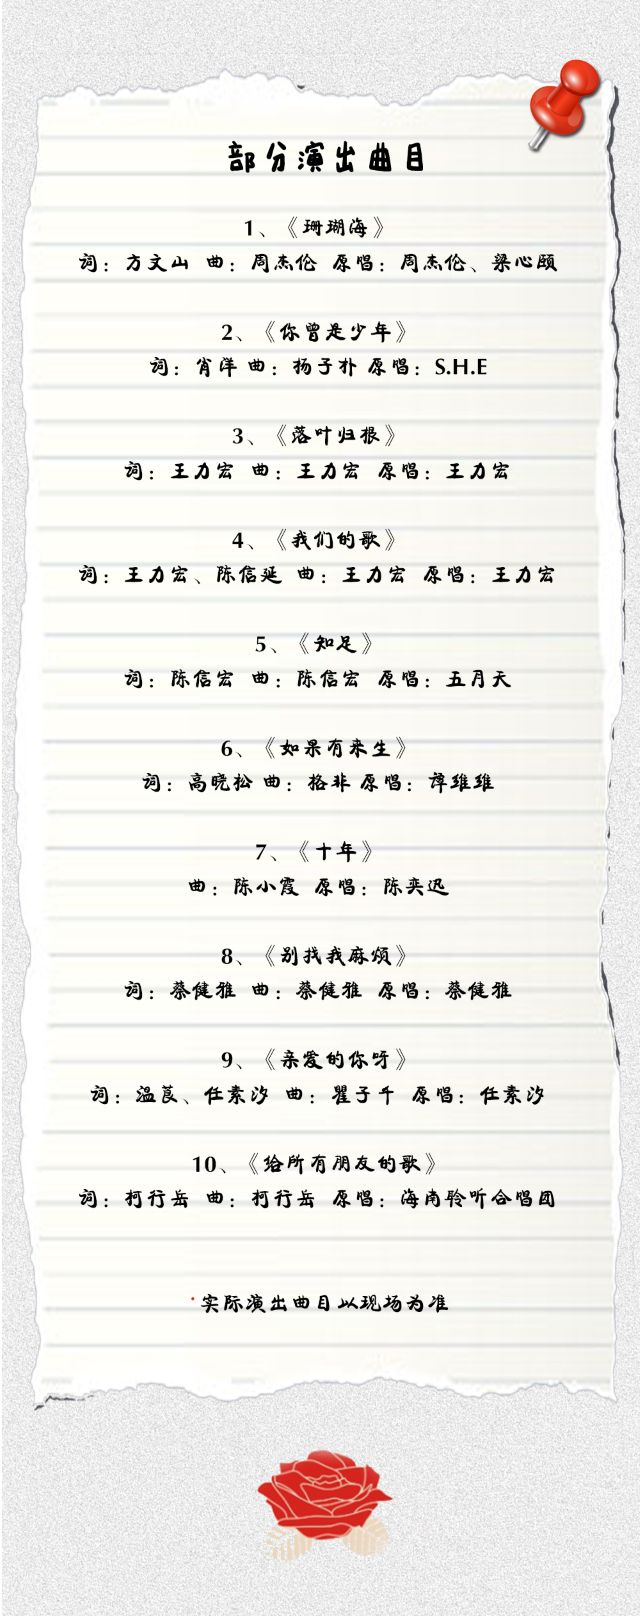 部分演出曲目
1、《珊瑚海》
词：方文山 曲：周杰伦 原唱：周杰伦、梁心颐
2、《你曾是少年》
词：肖洋 曲：扬子朴 原唱：S.H.E
3、《落叶归根》
词：王力宏 曲：王力宏 原唱：王力宏
4、《我们的歌》
词：王力宏、陈信延 曲：王力宏 原唱：王力宏
5、《知足》
词：陈信宏 曲：陈信宏 原唱：五月天
6、《如果有来生》
词：高晓松 曲：格非 原唱：谭维维
7、《十年》
曲：陈小霞 原唱：陈奕迅
8、《别找我麻烦》
词：蔡健雅 曲：蔡健雅 原唱：蔡健雅
9、《亲爱的你呀》
词：温莨、任素汐 曲：瞿子千 原唱：任素汐
10、《给所有朋友的歌》
词：柯行岳 曲：柯行岳 原唱：海南聆听合唱团
*实际演出曲目以现场为准